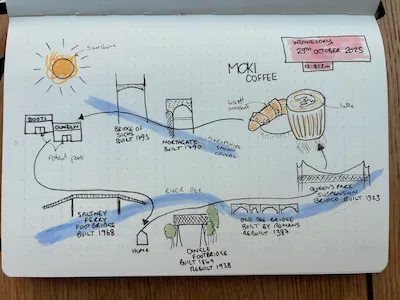 Sunshine
WEDNESDAY
29TH OCTOBER 2025
MOKI
COFFEE
biscoff
croissant
latte
BOOTS
DUNELM
retail park
BRIDGE OF
SIGHS
BUILT 1793
NORTHGATE
BUILT 1790
SHROPSHIRE
UNION
CANAL
QUEEN'S PARK
SUSPENSION
BRIDGE BUILT 1923
RIVER DEE
SALTNEY
FERRY
FOOTBRIDGE
BUILT 1968
HOME
DINGLE
FOOTBRIDGE
BUILT 1849
REBUILT 1938
OLD DEE BRIDGE
BUILT BY ROMANS
REBUILT 1387